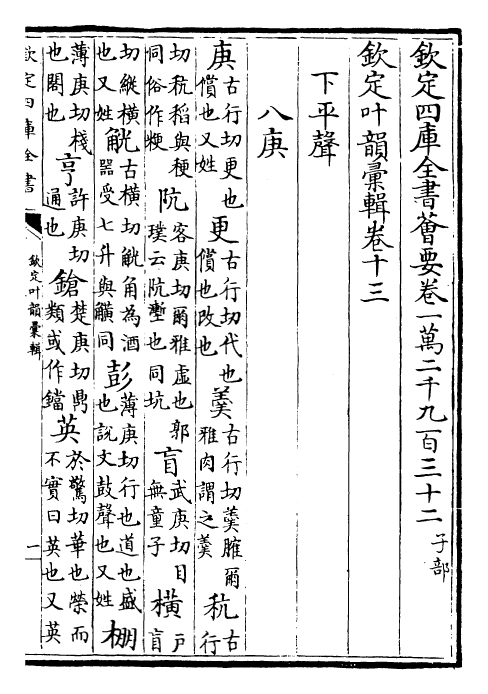 欽定四庫全書薈要卷一萬二千九百三十二 子部
欽定叶韻彙輯卷十三
下平聲
八庚
庚 古行切更也償也又姓 更 古行切代也償也改也 羹 古行切羹臛爾雅肉謂之羹 秔 古行
切秔稻與稉同俗作粳 阬 客庚切爾雅虛也郭璞云阬壍也同坑 盲 武庚切目無童子 橫 戶盲
切縱橫也又姓 觥 古橫切觥角為酒器受七升與觵同 彭 薄庚切行也道也盛也說文鼓聲也又姓 棚
薄庚切棧也閣也 亨 許庚切通也 鎗 楚庚切鼎類或作鐺 英 於驚切華也榮而不實曰英也又英
欽定四庫全書 欽定叶韻彙輯 一